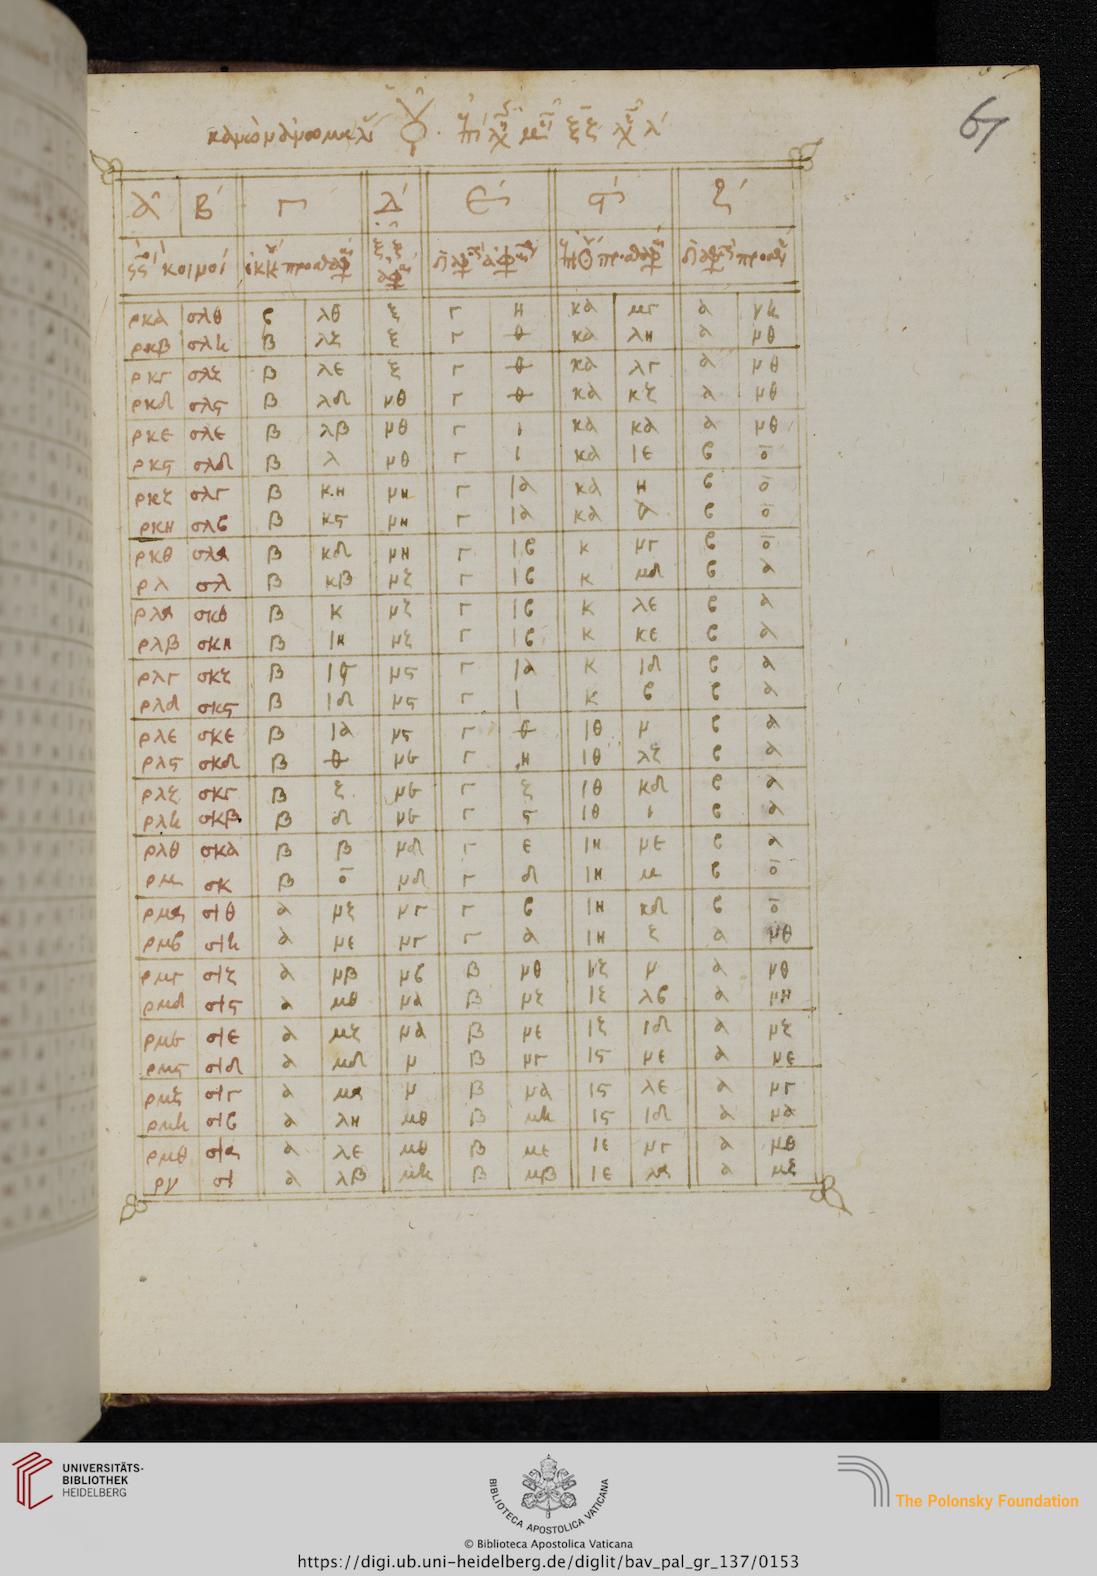 67
α β γ δ ε ϛ ζ
ρκα σλθ β λθ ξ γ η κα μγ α
ρκβ σλη β λζ ξ γ θ κα λη α μθ
ρκγ σλζ β λε ξ γ θ κα λγ α μθ
ρκδ σλϛ β λδ μθ γ θ κα κζ α μθ
ρκε σλε β λβ μθ γ ι κα κα α μθ
ρκϛ σλδ β λ μθ γ ι κα ιε β ο
ρκζ σλγ β κη μη γ ια κα η β ο
ρκη σλβ β κϛ μη γ ια κα α β ο
ρκθ σλα β κδ μη γ ιβ κ μγ β ο
ρλ σλ β κβ μζ γ ιβ κ μδ β α
ρλα σκθ β κ μζ γ ιβ κ λε β α
ρλβ σκη β ιη μζ γ ιβ κ κε β α
ρλγ σκζ β ιϛ μϛ γ ια κ ιδ β α
ρλδ σκϛ β ιδ μϛ γ ι κ β β α
ρλε σκε β ια μϛ γ θ ιθ μ β α
ρλϛ σκδ β θ με γ η ιθ λζ β α
ρλζ σκγ β ζ με γ ζ ιθ κδ β α
ρλη σκβ β δ με γ ϛ ιθ ι β α
ρλθ σκα β β μδ γ ε ιη με β α
ρμ σκ β ο μδ γ δ ιη μ β ο
ρμα σιθ α μζ μγ γ β ιη κδ β ο
ρμβ σιη α με μγ γ α ιη ζ α μθ
ρμγ σιζ α μβ μβ β μθ ιζ μ α μθ
ρμδ σιϛ α μθ μα β μζ ιζ λβ α μη
ρμε σιε α μζ μα β με ιζ ιδ α μζ
ρμϛ σιδ α μδ μ β μγ ιϛ με α με
ρμζ σιγ α μα μ β μα ιϛ λε α μγ
ρμη σιβ α λη μθ β μη ιϛ ιδ α μα
ρμθ σια α λε μθ β με ιε μγ α μθ
ρν σι α λβ μη β μβ ιε λα α μζ
UNIVERSITÄTS-
BIBLIOTHEK
HEIDELBERG
BIBLIOTECA APOSTOLICA VATICANA
The Polonsky Foundation
© Biblioteca Apostolica Vaticana
https://digi.ub.uni-heidelberg.de/diglit/bav_pal_gr_137/0153